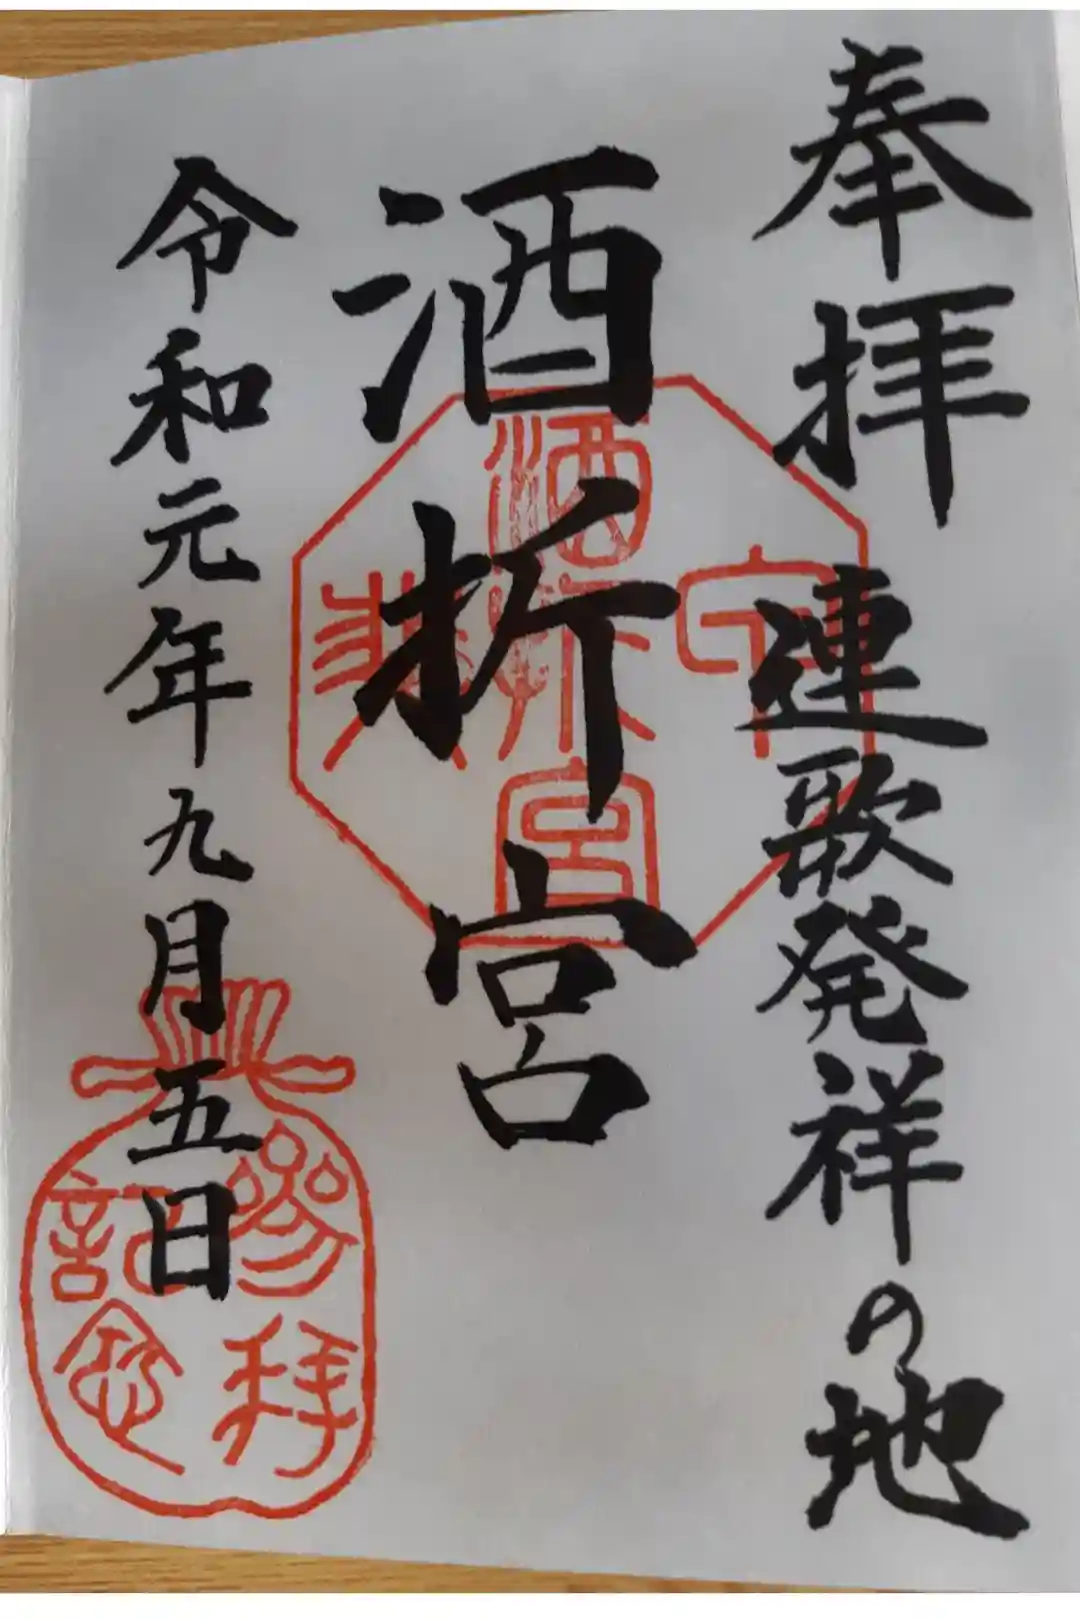 奉拝
連歌発祥の地
酒折宮
令和元年九月五日
酒折宮
参拝
記念